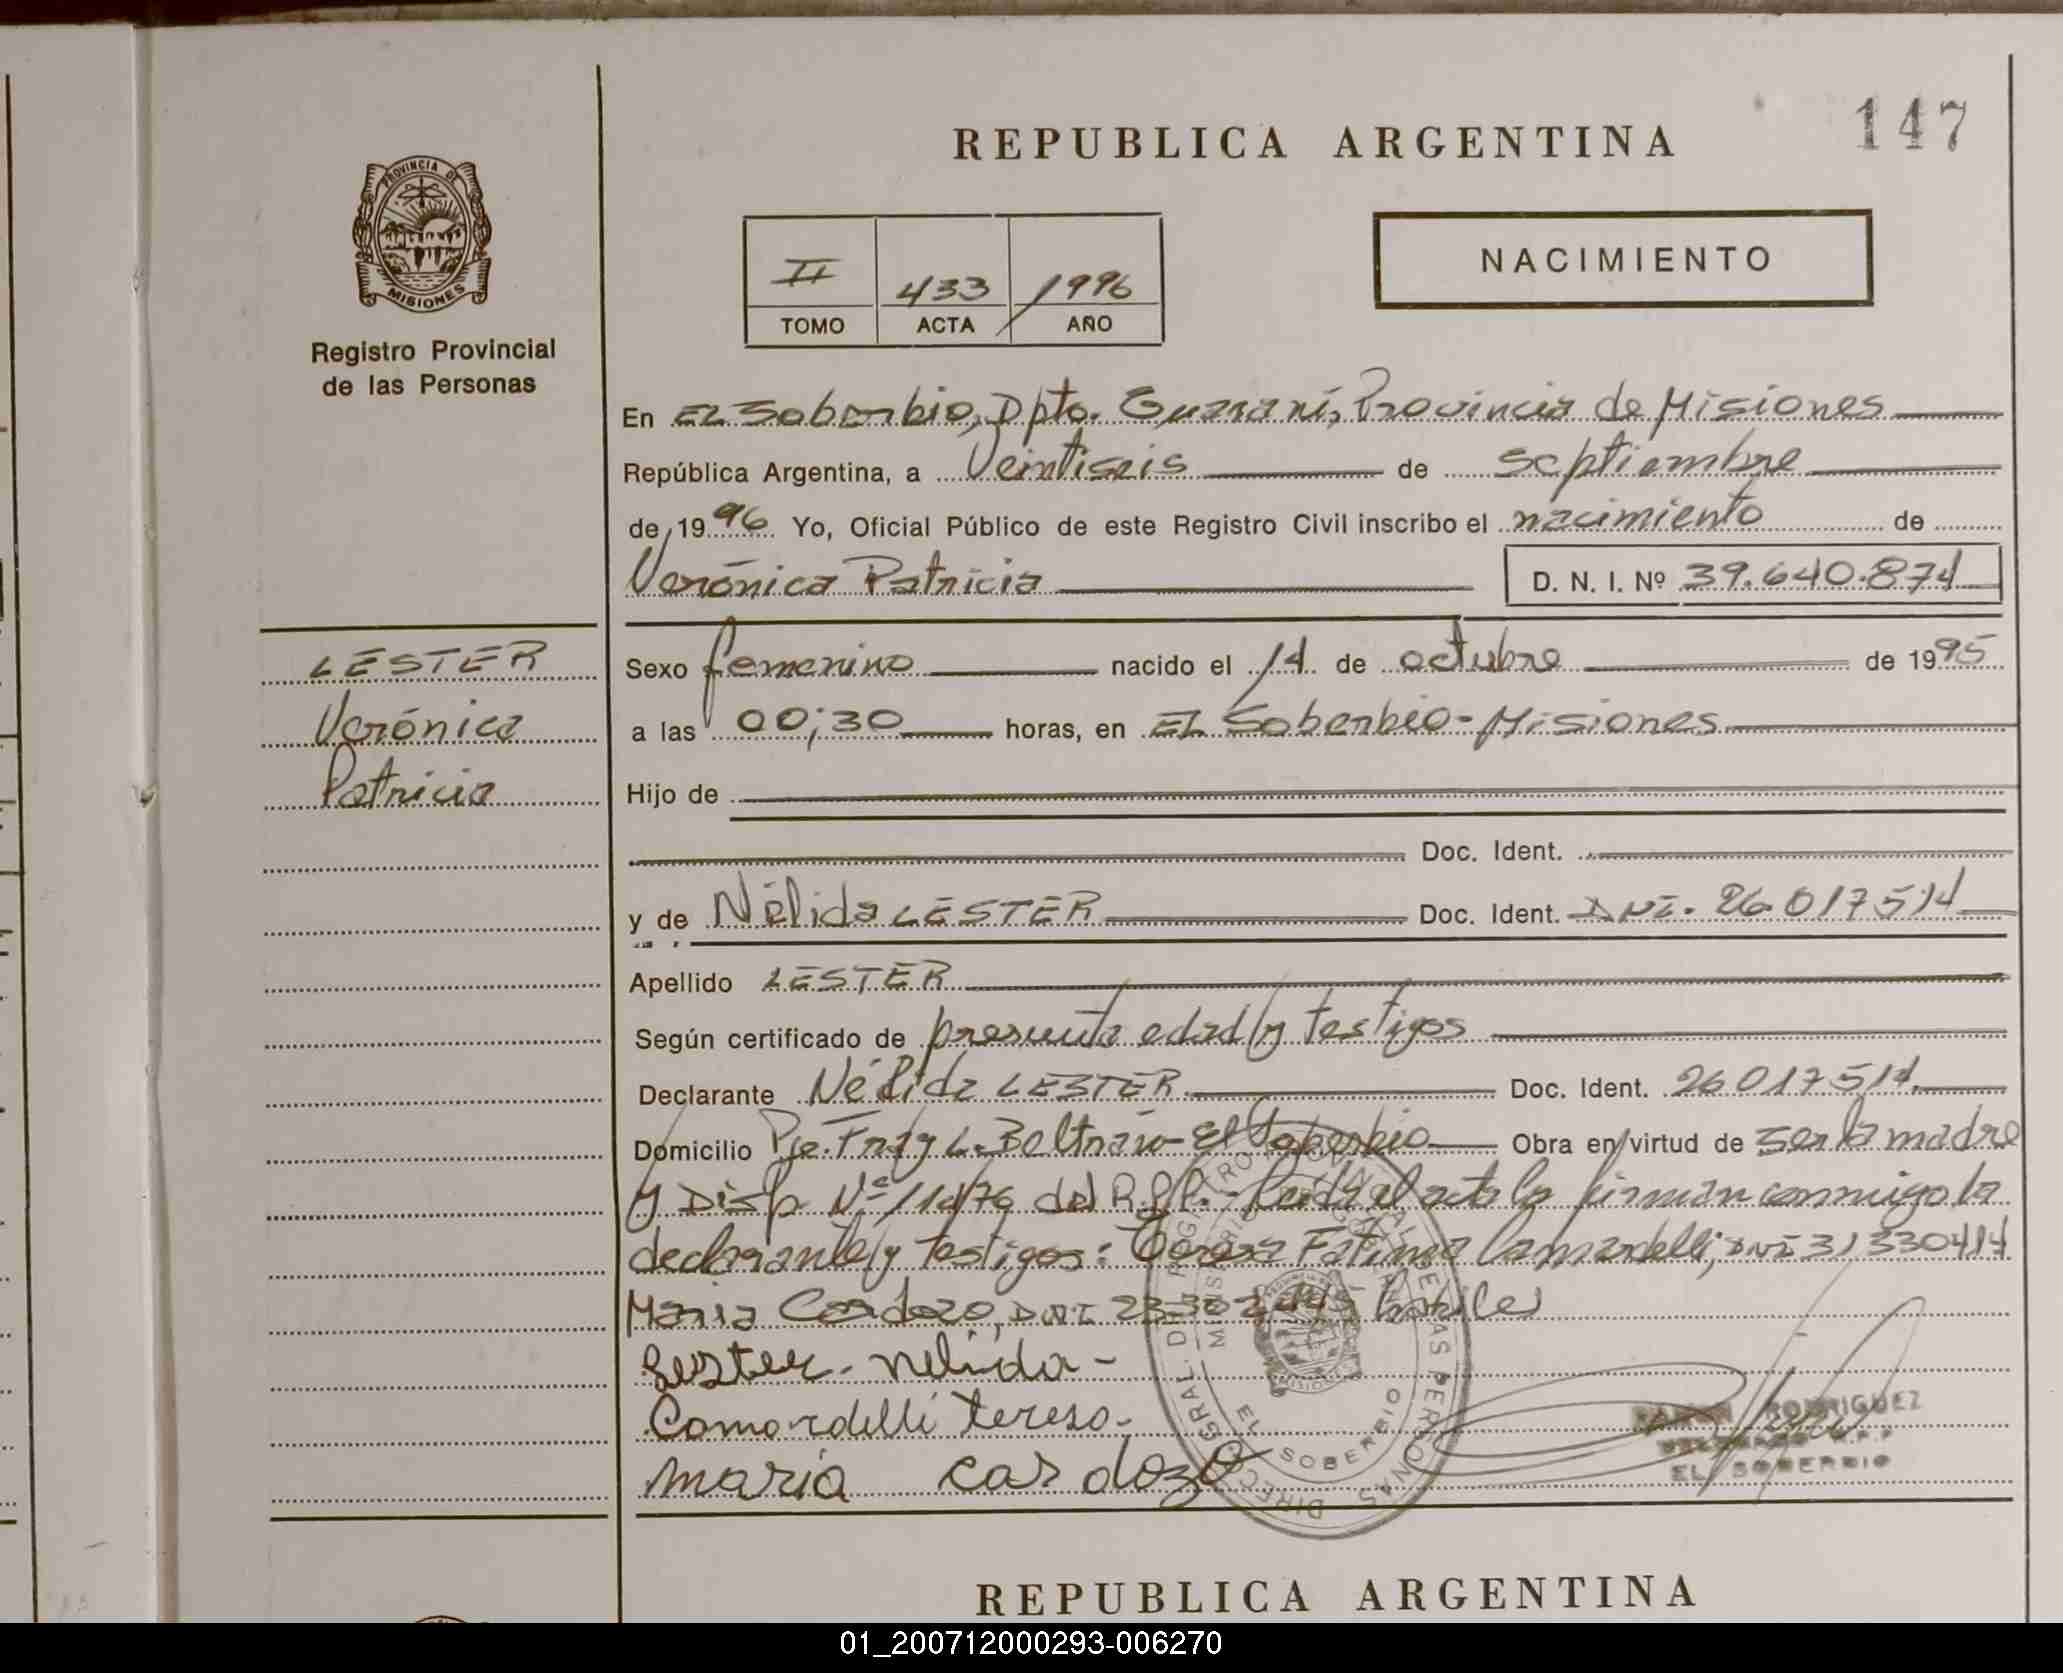 REPUBLICA ARGENTINA
147
PROVINCIA DE
MISIONES
Registro Provincial
de las Personas
II 433 1996
TOMO ACTA AÑO
NACIMIENTO
En El Soberbio, Dpto. Guaraní, Provincia de Misiones
República Argentina, a Veintiseis de septiembre
de 1996 Yo, Oficial Público de este Registro Civil inscribo el nacimiento de
Verónica Patricia D. N. I. Nº 39.640.874
LESTER
Verónica
Patricia
Sexo femenino nacido el 14 de octubre de 1995
a las 00;30 horas, en El Soberbio - Misiones
Hijo de
Doc. Ident.
y de Nélida LESTER Doc. Ident. DNI. 26017514
Apellido LESTER
Según certificado de presunta edad y testigos
Declarante Nélida LESTER Doc. Ident. 26017514
Domicilio Pje. Fray L. Beltrán - El Soberbio Obra en virtud de ser la madre
y Disp Nº 114/76 del R.P.P. - Leida el acta la firman conmigo la
declarante y testigos: Teresa Fatima Camardelli, DNI 31330414
Maria Cardozo, DNI habiles
Lester. nelida -
Comordelli tereso.
maria cardozo
DIRECC GRAL DEL REGISTRO PROVINCIAL DE LAS PERSONAS
EL SOBERBIO
RODRIGUEZ
EL SOBERBIO
REPUBLICA ARGENTINA
01_200712000293-006270